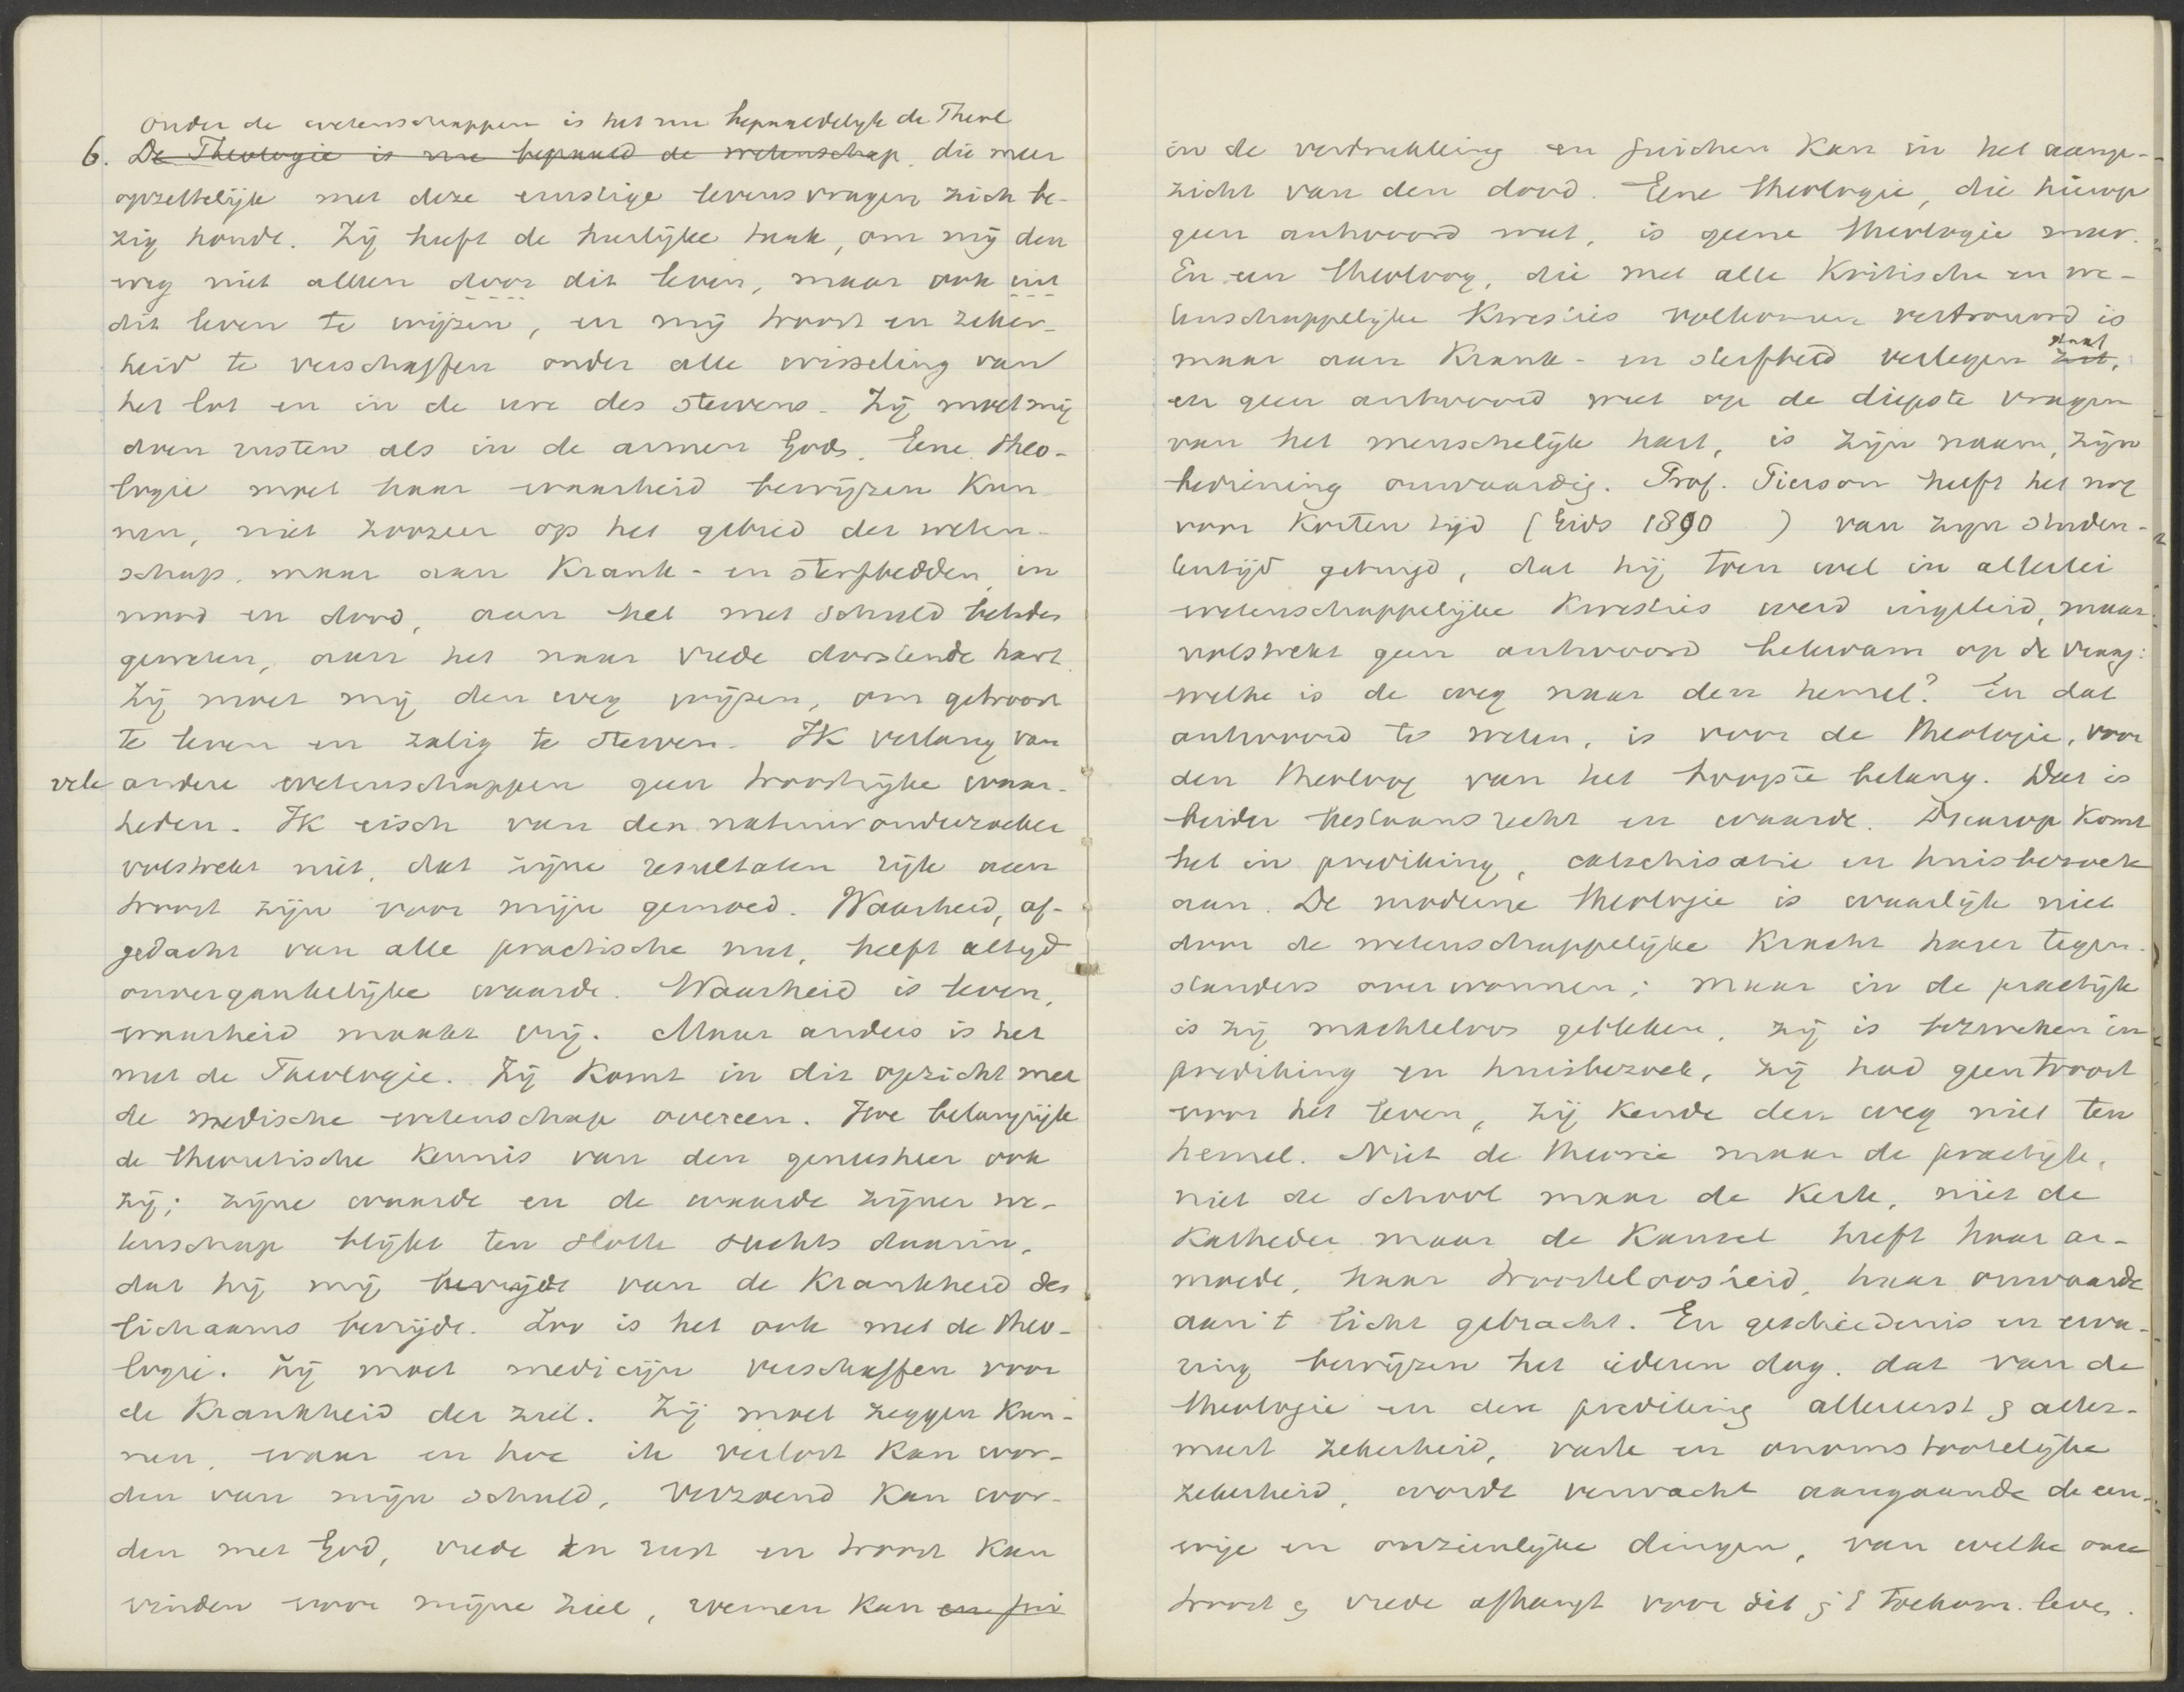 Onder de wetenschappen is het nu bepaaldelijk de Theol
6. De Theologie is nu bepaald de wetenschap, die meer
opzettelijk met deze ernstige levensvragen zich be-
zig houdt. Zij heeft de heerlijke taak, om mij den
weg niet alleen door dit leven, maar ook uit
dit leven te wijzen, en mij troost en zeker-
heid te verschaffen onder alle wisseling van
het lot en in de ure des stervens. Zij moet mij
doen rusten als in de armen Gods. Eene theo-
logie moet haar waarheid bewijzen kun
nen, niet zoozeer op het gebied der weten-
schap, maar aan krank- en sterfbedden, in
nood en dood, aan het met schuld beladen
geweten, aan het naar vrede dorstende hart.
Zij moet mij den weg wijzen, om getroost
te leven en zalig te sterven. Ik verlang van
vele andere wetenschappen geen troostrijke waar-
heden. Ik eisch van den natuuronderzoeker
volstrekt niet, dat zijne resultaten rijk aan
troost zijn voor mijn gemoed. Waarheid, af-
gedacht van alle practische nut, heeft altijd
onvergankelijke waarde. Waarheid is leven,
waarheid maakt vrij. Maar anders is het
met de Theologie. Zij komt in dit opzicht met
de medische wetenschap overeen. Hoe belangrijk
de theoretische kennis van den geneesheer ook
zij; zijne waarde en de waarde zijner we-
tenschap blijkt ten slotte slechts daarin,
dat hij mij bevrijdt van de krankheid des
lichaams bevrijde. Zoo is het ook met de theo-
logie. Zij moet medicijn verschaffen voor
de krankheid der ziel. Zij moet zeggen kun-
nen, waar en hoe ik verlost kan wor-
den van mijn schuld, verzoend kan wor-
den met God, vrede en rust en troost kan
vinden voor mijne ziel, roemen kan en jui
in de verdrukking en juichen kan in het aange-
zicht van den dood. Eene theologie, die hierop
geen antwoord weet, is geene theologie meer.
En een theoloog, die met alle kritische en we-
tenschappelijke kwesties volkomen vertrouwd is
maar aan krank- en sterfbed verlegen zit, staat
en geen antwoord weet op de diepste vragen
van het menschelijk hart, is zijn naam, zijn
bediening onwaardig. Prof. Pierson heeft het nog
voor korten tijd (Gids 1890 ) van zijn studen-
tentijd getuigd, dat hij toen wel in allerlei
wetenschappelijke kwesties werd ingeleid, maar
volstrekt geen antwoord bekwam op de vraag:
welke is de weg naar den hemel? En dat
antwoord te weten, is voor de theologie, voor
den theoloog van het hoogste belang. Dat is
beider bestaansrecht en waarde. Daarop komt
het in prediking, catechisatie en huisbezoek
aan. De moderne theologie is waarlijk niet
door de wetenschappelijke kracht harer tegen-
standers overwonnen; maar in de practijk
is zij machteloos gebleken, zij is bezweken in
prediking en huisbezoek, zij had geen troost
voor het leven, zij kende den weg niet ten
hemel. Niet de theorie maar de practijk,
niet de school maar de kerk, niet de
katheder maar de kansel heeft haar ar-
moede, haar troosteloosheid, haar onwaarde
aan 't licht gebracht. En geschiedenis en erva-
ring bewijzen het iederen dag, dat van de
theologie en den prediking allereerst & aller-
meest zekerheid, vaste en onomstootelijke
zekerheid, wordt verwacht aangaande de eeu-
wige en onzienlijke dingen, van welke onze
troost & vrede afhangt voor dit & 't toekom. leven.